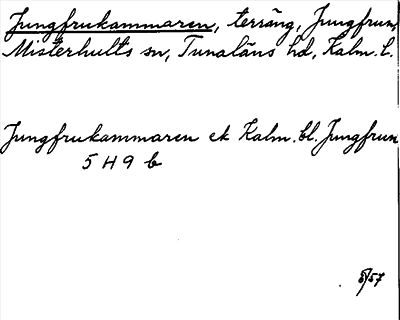 Jungfrukammaren, terräng, Jungfrun,
Misterhults sn, Tunaläns hd, Kalm. l.
Jungfrukammaren ek Kalm. bl. Jungfrun
5 H 9 b
8/57